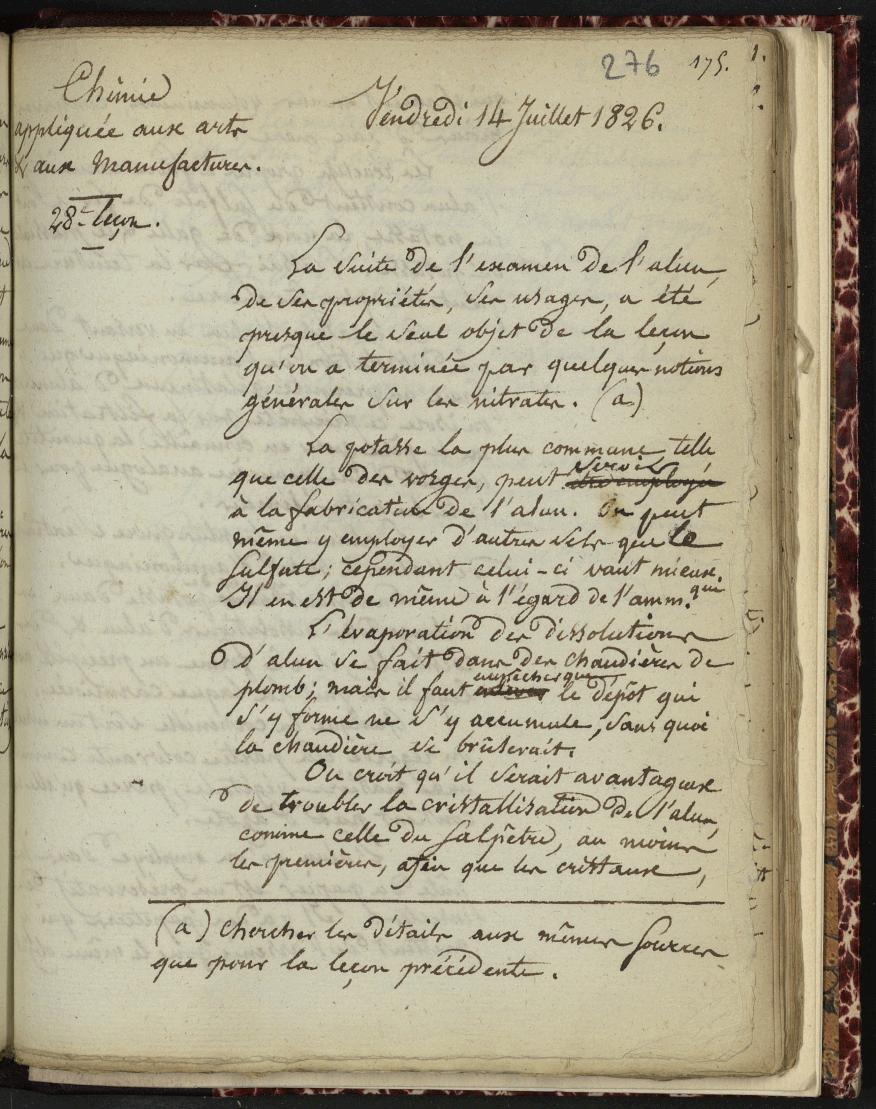 276 175.
Chimie
appliquée aux arts
& aux Manufactures.
28e leçon.
Vendredi 14 Juillet 1826.
La suite de l'examen de l'alun,
de ses propriétés, ses usages, a été
presque le seul objet de la leçon
qu'on a terminée par quelques notions
générales sur les nitrates. (a)
La potasse la plus commune, telle
que celle des vosges, peut servir
être employée
à la fabrication de l'alun. On peut
même y employer d'autres sels que le
Sulfate; cependant celui-ci vaut mieux.
Il en est de même à l'égard de l'amm.que
L'évaporation des dissolutions
d'alun se fait dans des chaudières de
plomb; mais il faut empêcher que
enlever le dépôt qui
s'y forme ne s'y accumule, sans quoi
la chaudière se brûlerait.
On croit qu'il serait avantageux
de troubler la cristallisation de l'alun,
comme celle du Salpêtre, au moins
les premières, afin que les cristaux,
(a) chercher les détails aux mêmes sources
que pour la leçon précédente.